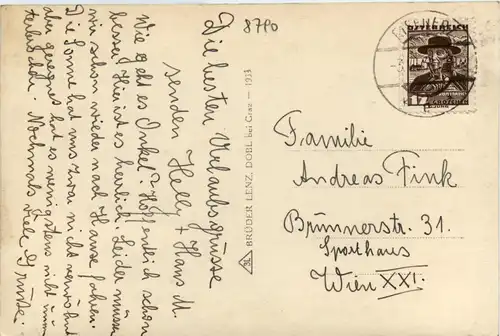 8790
Die besten Urlaubsgrüsse
senden Helly + Hans M.
Wie geht es Onkel? Hoffentlich schon
besser. Hier ist es herrlich. Leider müssen
wir schon wieder nach Hause fahren.
Die Sonne hat uns zwar nicht verwöhnt
aber geregnet hat es wenigstens nicht
Nochmals viele Grüsse.
BRÜDER LENZ, DOBL bei Graz
ÖSTERREICH
12
Familie
Andreas Fink
Brünnerstr. 31.
Sporthaus
Wien XXI.